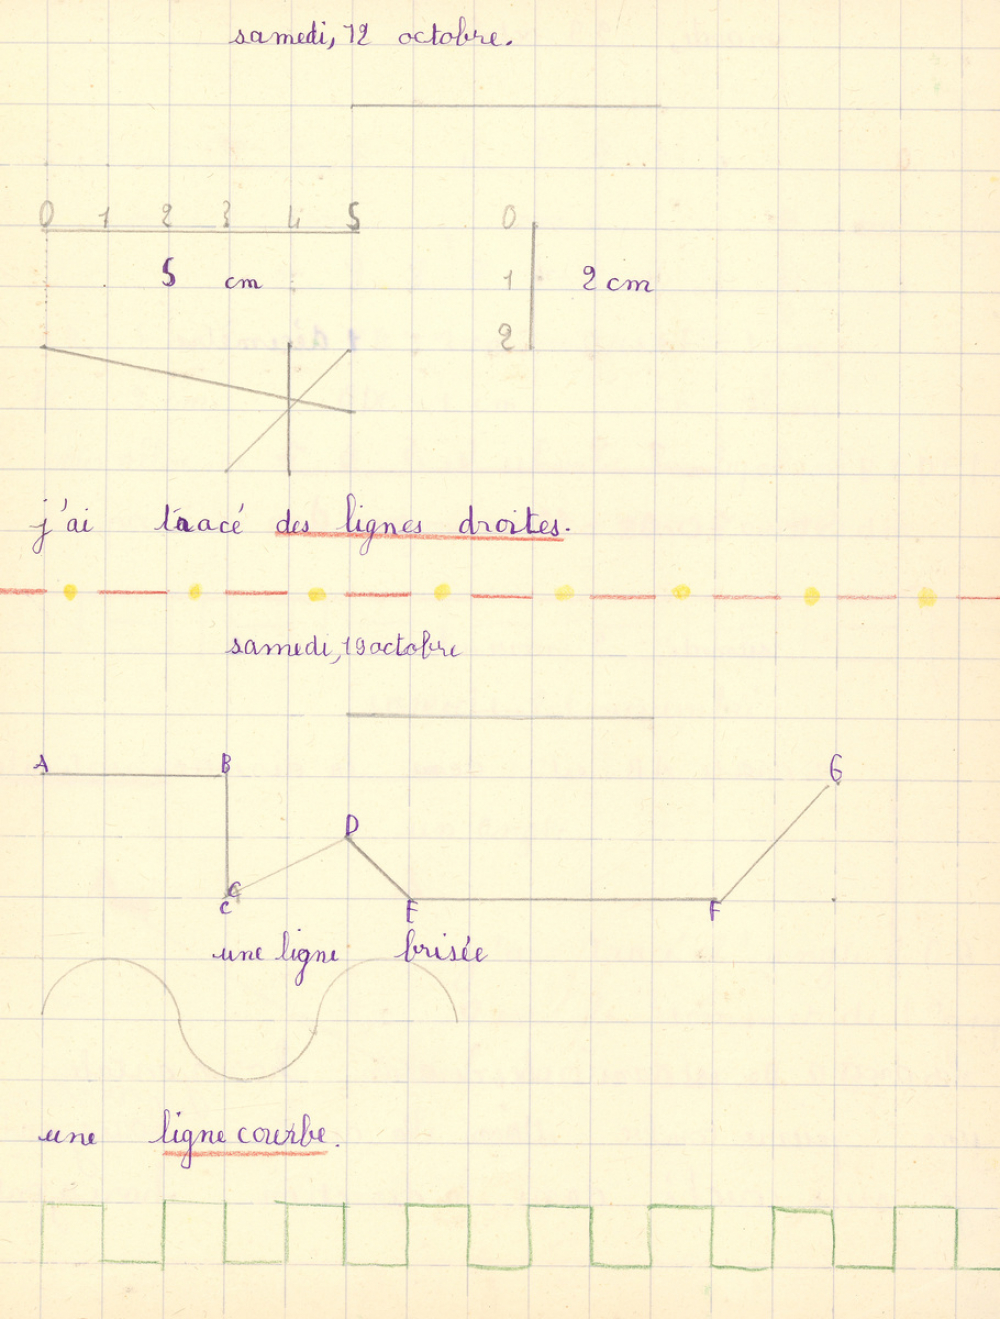 samedi, 12 octobre.
0 1 2 3 4 5
0
5 cm
1
2 cm
2
j'ai tracé des lignes droites.
samedi, 19 octobre
A B G
D
C
C E F
une ligne brisée
une ligne courbe.